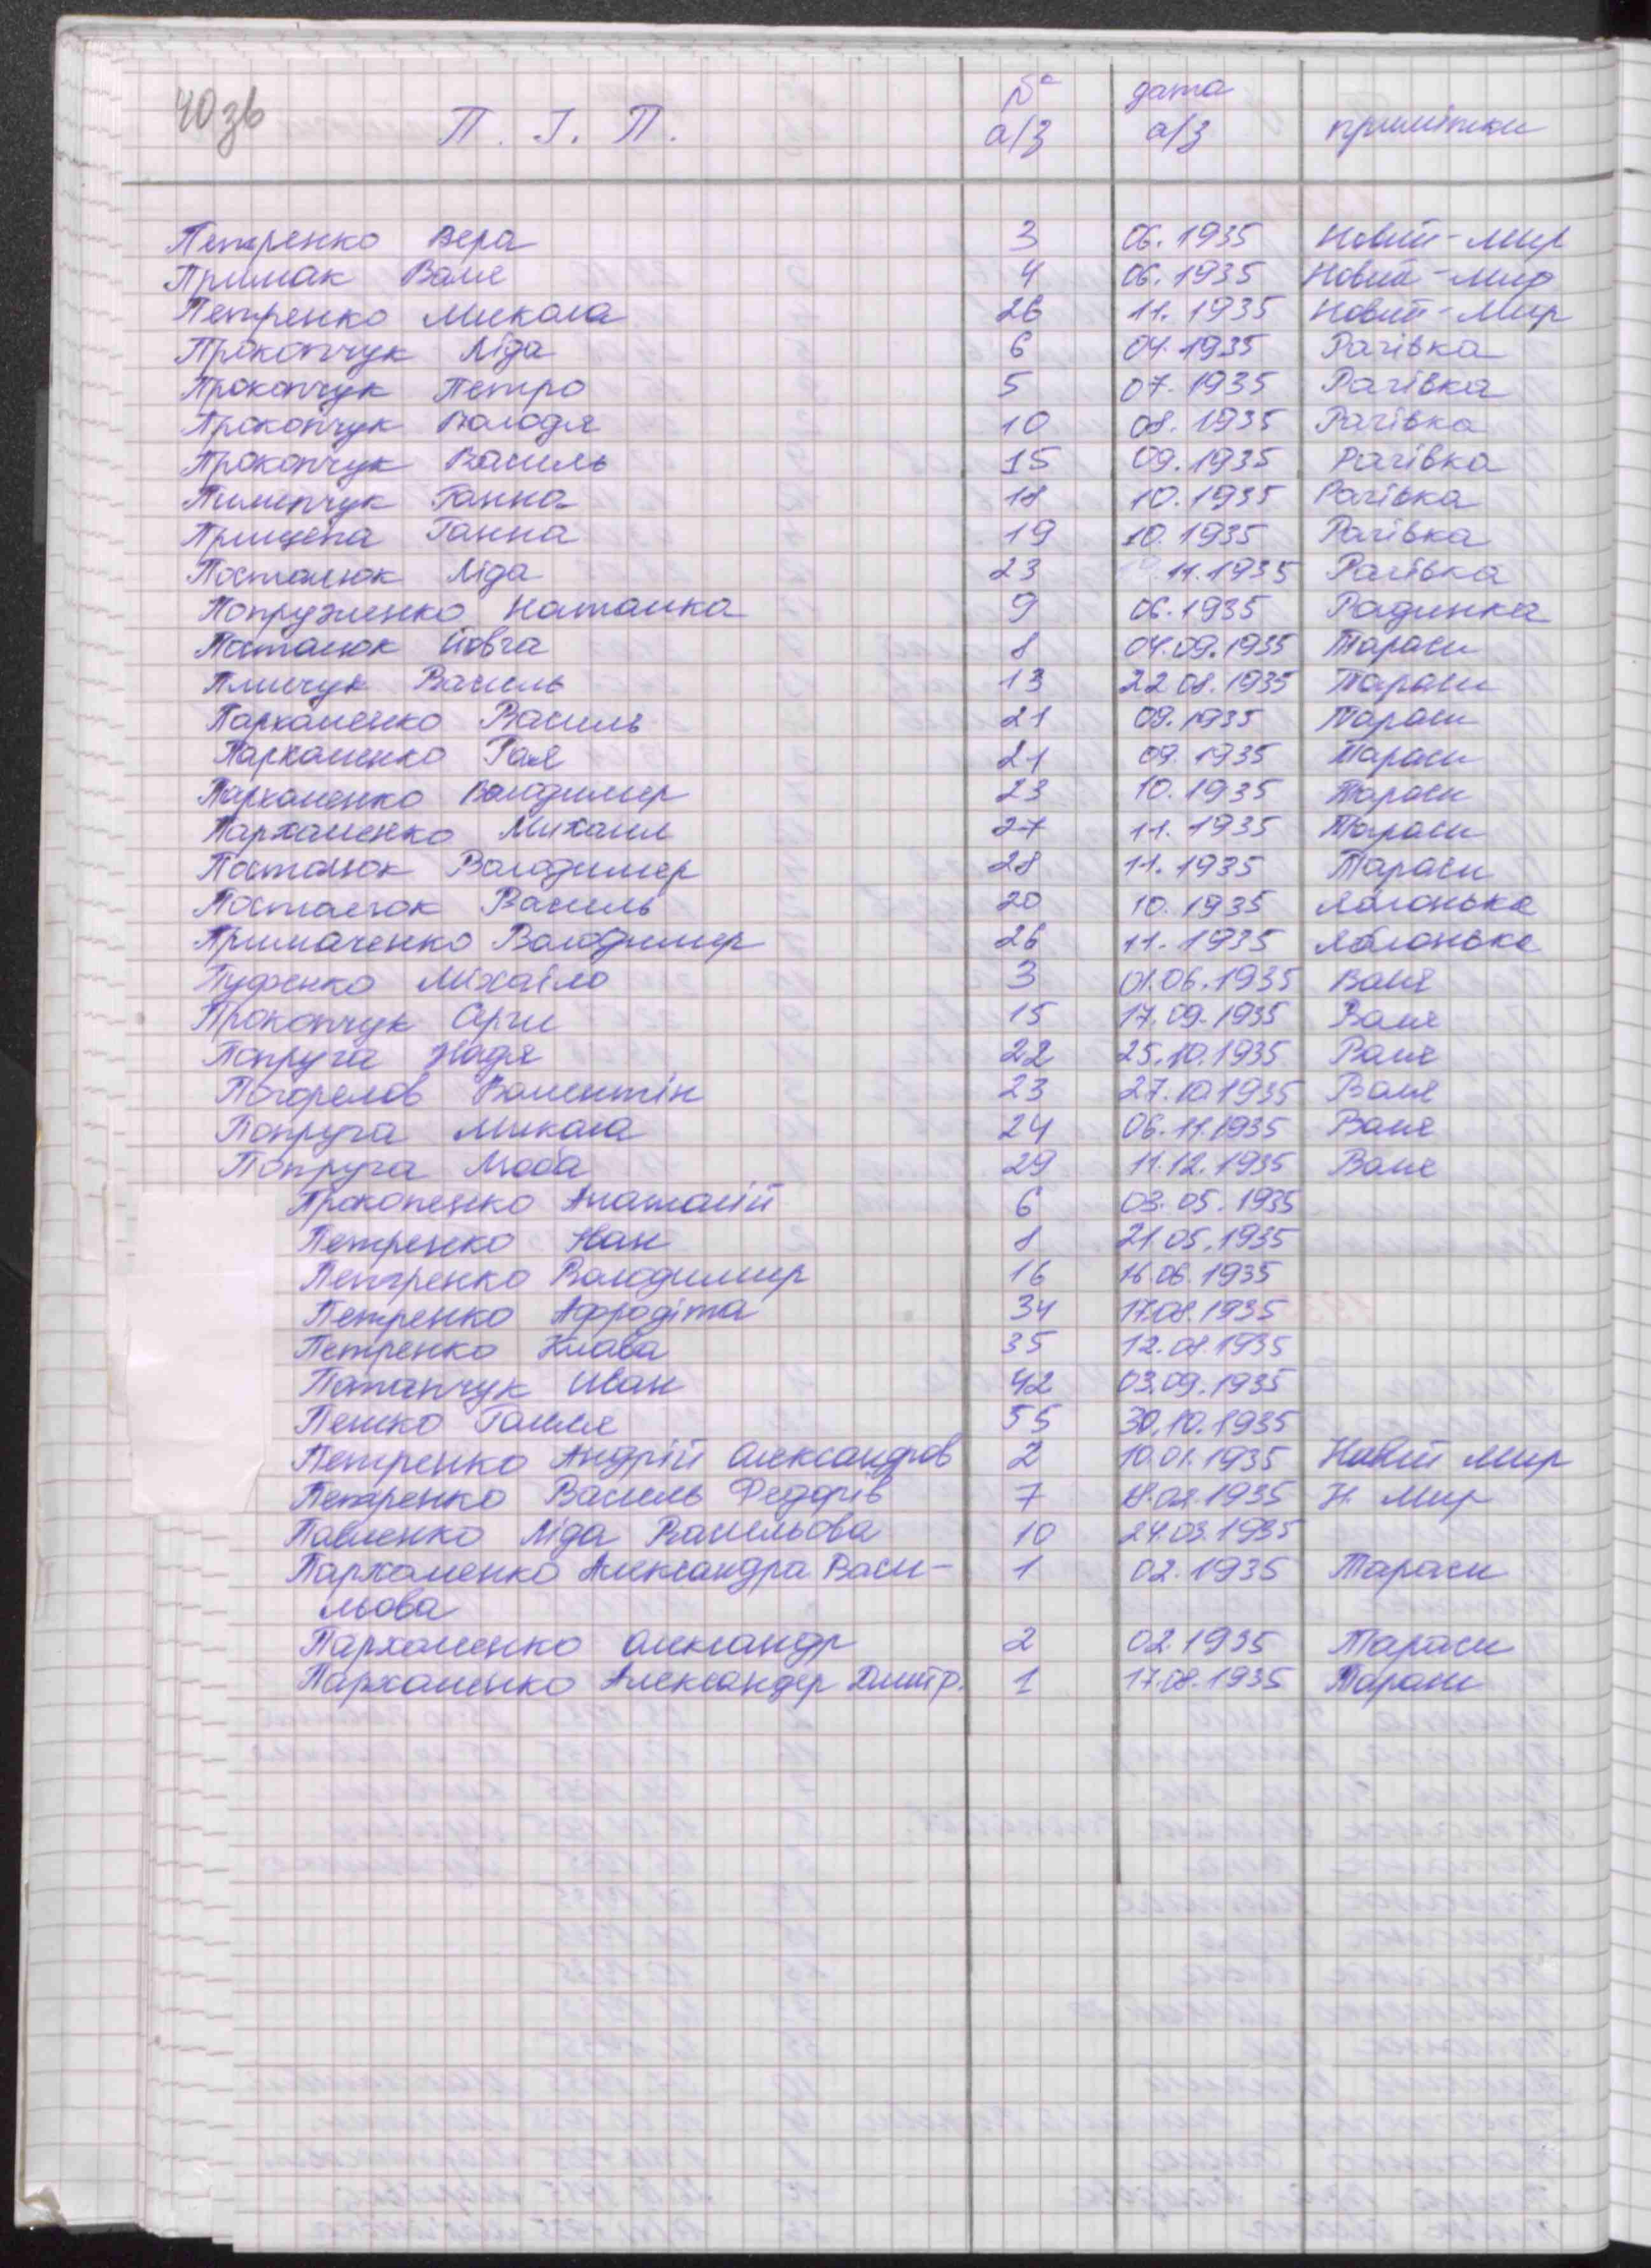 40зв
П. І. П. № а/з дата а/з примітки
Петренко Вера 3 06.1935 Новий-Мир
Примак Валя 4 06.1935 Новий-Мир
Петренко Микола 26 11.1935 Новий-Мир
Прокопчук Ліда 6 04.1935 Рагівка
Прокопчук Петро 5 07.1935 Рагівка
Прокопчук Володя 10 08.1935 Рагівка
Прокопчук Василь 15 09.1935 Рагівка
Пилипчук Ганна 18 10.1935 Рагівка
Прищепа Ганна 19 10.1935 Рагівка
Посталюк Ліда 23 11.1935 Рагівка
Попруженко Наталка 9 06.1935 Радинка
Посталюк 8 04.09.1935 Тараси
Василь 13 22 08.1935 Тараси
Пархоменко Василь 21 09.1935 Тараси
Пархоменко Галя 21 09.1935 Тараси
Пархоменко Володимер 23 10.1935 Тараси
Пархоменко Михаил 27 11.1935 Тараси
Посталюк Володимер 28 11.1935 Тараси
Посталюк Василь 20 10.1935 Яблонька
Примаченко Володимер 26 11.1935 Яблонька
Міхаіло 3 01.06.1935 Валя
Прокопчук 15 17.09.1935 Валя
Попруга Надя 22 25.10.1935 Валя
Погорелов Валентін 23 27.10.1935 Валя
Попруга Микола 24 06.11.1935 Валя
Попруга 29 11.12.1935 Валя
Прокопенко Анатолій 6 03.05.1935
Петренко Іван 8 21.05.1935
Петренко Володимир 16 16.06.1935
Петренко Афродіта 34 17.08.1935
Петренко Клава 35 12.08.1935
Патапчук Иван 42 03.09.1935
Галля 55 30.10.1935
Петренко Андрій Олександров 2 10.01.1935 Новій Мир
Петренко Василь Федорів 7 1935 Н. Мир
Павленко Ліда Васильова 10 24.03.1935
Пархоменко Александра Васи- 1 02.1935 Тараси
льова
Пархоменко Олександр 2 02.1935 Тараси
Пархоменко Александер Дмитр. 1 17.08.1935 Тараси